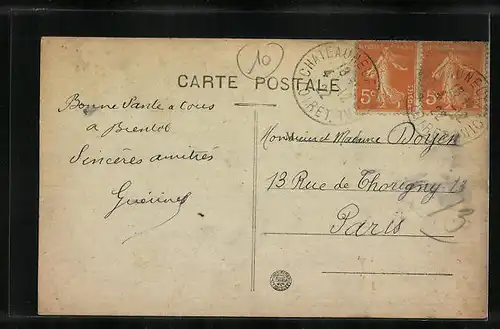 10
CARTE POSTALE
CHATEAUNEUF
LOIRET
5c 5c
POSTES
Bonne Santé a tous
a Bientot
Sincères amitiés
Monsieur et Madame Doyen
13 Rue de Thorigny 13
Paris
13